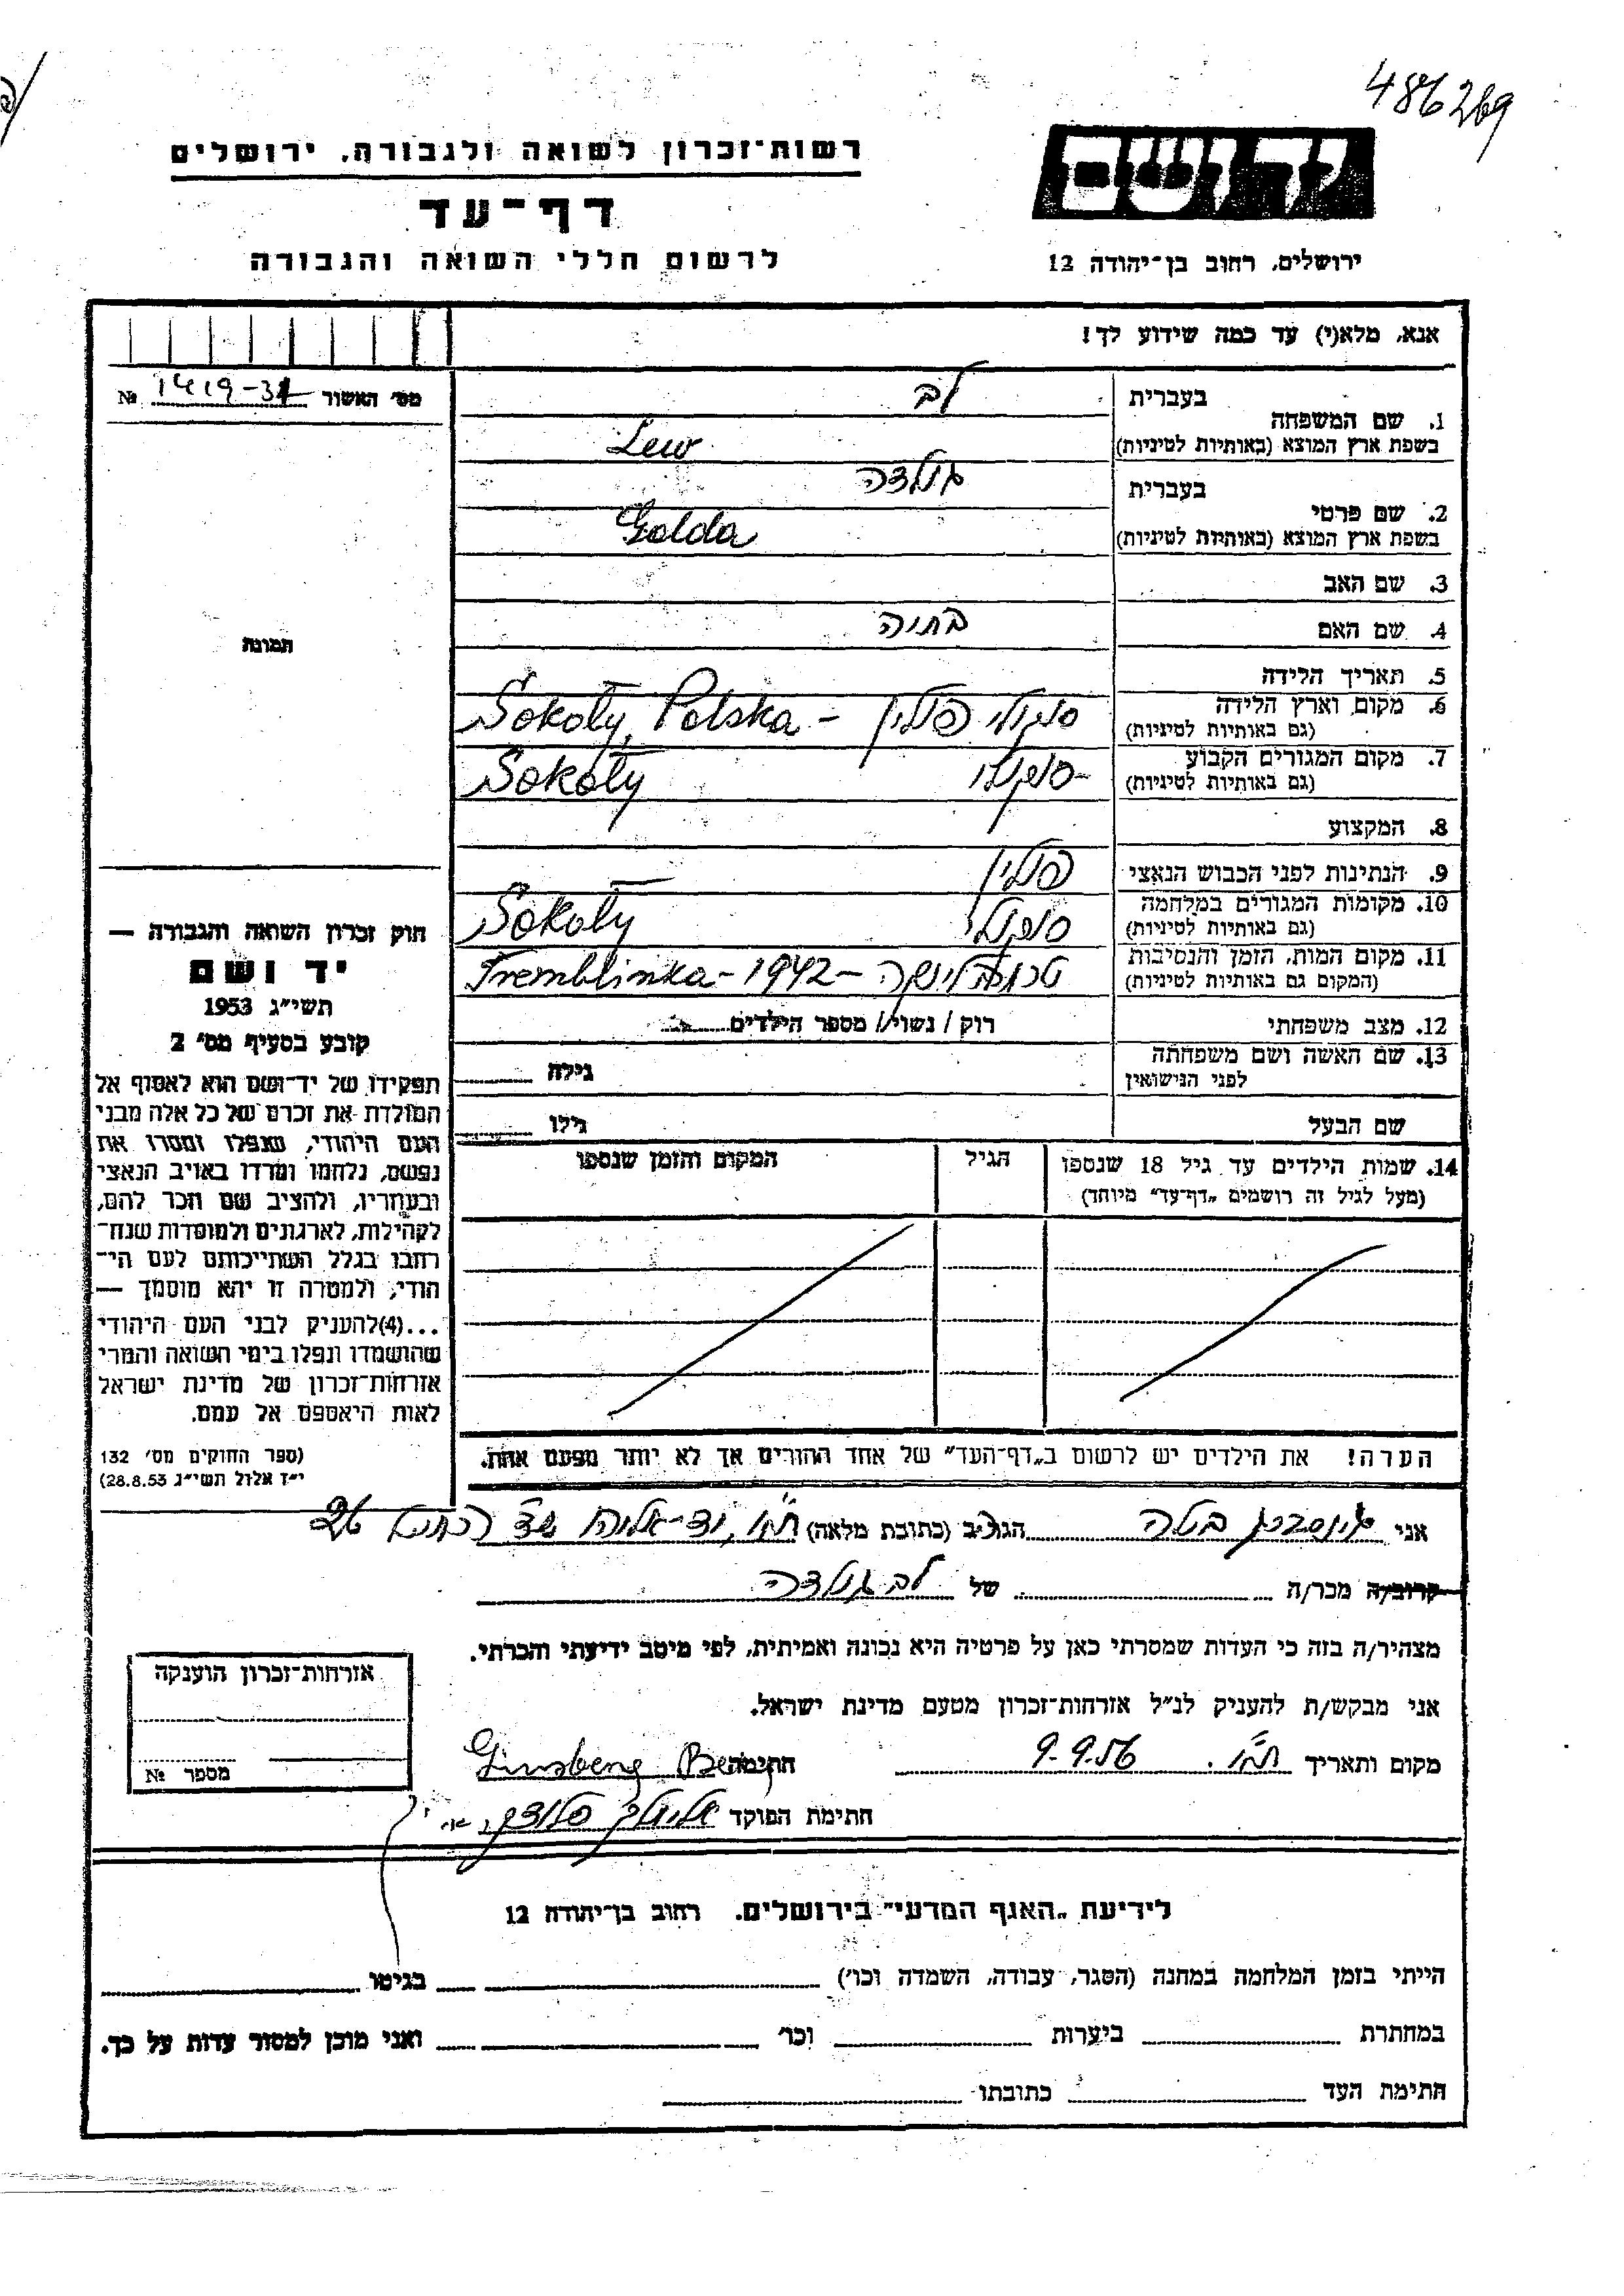 486269
רשות־זכרון לשואה ולגבורה, ירושלים
דף־עד
לרשום חללי השואה והגבורה
יד ושם
ירושלים, רחוב בן־יהודה 12
אנא, מלא(י) עד כמה שידוע לך!
מס׳ האשור 1419-31 №
בעברית לב
1. שם המשפחה
בשפת ארץ המוצא (באותיות לטיניות) Lew
בעברית גולדה
2. שם פרטי
בשפת ארץ המוצא (באותיות לטיניות) Golda
3. שם האב
4. שם האם בתיה
5. תאריך הלידה
6. מקום וארץ הלידה סוקולי פולין - Sokoły, Polska
(גם באותיות לטיניות)
7. מקום המגורים הקבוע סוקולי Sokoły
(גם באותיות לטיניות)
8. המקצוע
9. הנתינות לפני הכבוש הנאצי פולין
10. מקומות המגורים במלחמה סוקולי Sokoły
(גם באותיות לטיניות)
11. מקום המות, הזמן והנסיבות טרמבלינקה - 1942 - Tremblinka
(המקום גם באותיות לטיניות)
12. מצב משפחתי רוק / נשוי/ מספר הילדים
13. שם האשה ושם משפחתה גילה
לפני הנישואין
שם הבעל גילו
14. שמות הילדים עד גיל 18 שנספו הגיל המקום והזמן שנספו
(מעל לגיל זה רושמים „דף־עד״ מיוחד)
הערה! את הילדים יש לרשום ב„דף־העד״ של אחד ההורים אך לא יותר מפעם אחת.
תמונה
חוק זכרון השואה והגבורה —
יד ושם
תשי״ג 1953
קובע בסעיף מס׳ 2
תפקידו של יד־ושם הוא לאסוף אל
המולדת את זכרם של כל אלה מבני
העם היהודי, שנפלו ומסרו את
נפשם, נלחמו ומרדו באויב הנאצי
ובעוזריו, ולהציב שם וזכר להם,
לקהילות, לארגונים ולמוסדות שנח־
רבו בגלל השתייכותם לעם הי־
הודי; ולמטרה זו יהא מוסמך —
...(4)להעניק לבני העם היהודי
שהושמדו ונפלו בימי השואה והמרי
אזרחות־זכרון של מדינת ישראל
לאות היאספם אל עמם.
(ספר החוקים מס׳ 132
י״ז אלול תשי״ג 28.8.53)
אני גינסברג בטה הגר/ב (כתובת מלאה) ת״א, יד-אליהו
קרוב/ה מכר/ה של לב גולדה
מצהיר/ה בזה כי העדות שמסרתי כאן על פרטיה היא נכונה ואמיתית, לפי מיטב ידיעתי והכרתי.
אני מבקש/ת להעניק לנ״ל אזרחות־זכרון מטעם מדינת ישראל.
מקום ותאריך ת״א. 9.9.56 חתימה Ginsberg
חתימת הפוקד
אזרחות־זכרון הוענקה
מספר №
לידיעת „האגף המדעי״ בירושלים, רחוב בן־יהודה 12
הייתי בזמן המלחמה במחנה (הסגר, עבודה, השמדה וכו׳) בגיטו
במחתרת ביערות וכו׳ ואני מוכן למסור עדות על כך.
חתימת העד כתובתו